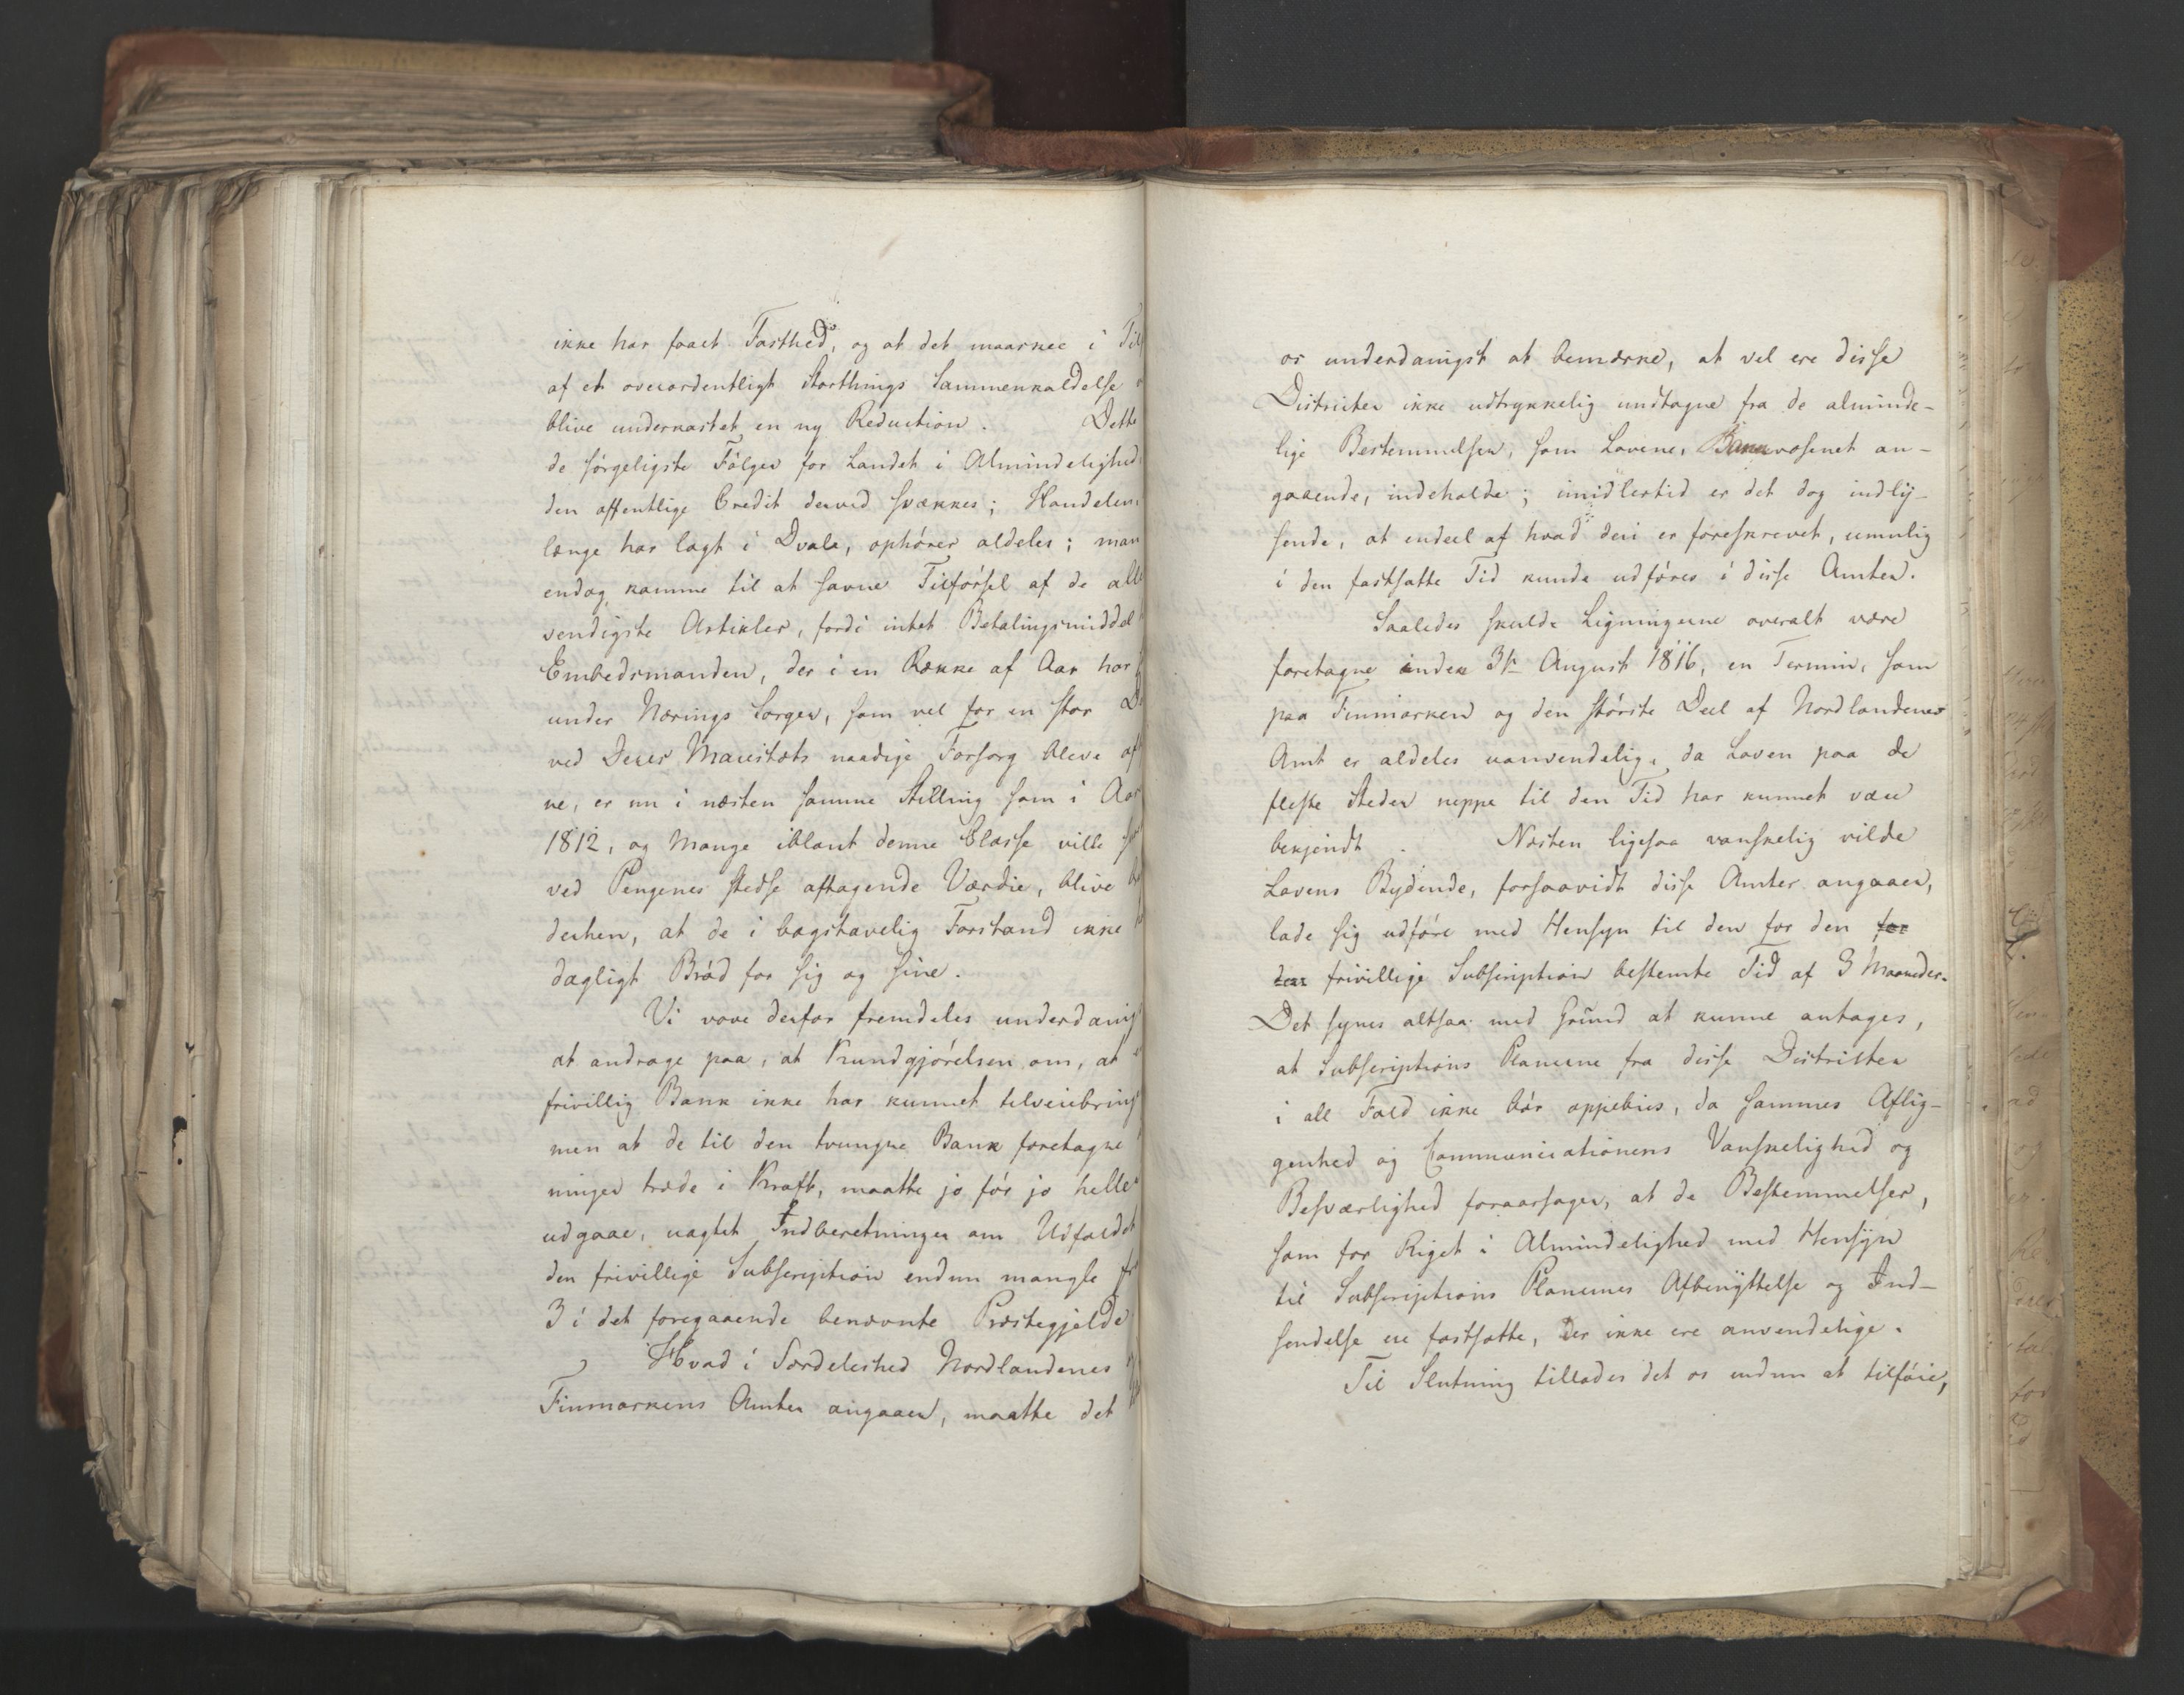 ikke har faaet Fasthed, og at det maaskee i
af et overordentligt Storthings Sammenkaldelse
blive underkastet en ny Reduction. Dette
de sørgeligste Følger for Landet i Almindelighed
den offentlige Credit derved svækkes; Handelen
længe har lagt i Dvale, ophører aldeles; man
endog komme til at savne Tilførsel af de
vendigste Artikler, fordi intet Betalingsmiddel
Embedsmanden, der i en Række af Aar har
under Nærings Sorger, som vel for en stor
ved Deres Maiestæts naadige Forsorg bleve
ne, er nu i næsten samme Stilling som i
1812, og Mange iblant denne Classe ville
ved Pengenes stedse aftagende Værdie, blive
derhen, at de i bogstavelig Forstand ikke
dagligt Brød for sig og sine.
Vi vove derfor fremdeles
at andrage paa, at Kundgjørelsen om, at
frivillig Bank ikke har kunnet
men at de til den tvungne Bank foretagne
ninger træde i Kraft, maatte jo før jo heller
udgaae, uagtet Indberetninger om Udfaldet
den frivillige Subscription endnu mangle
3 i det foregaaende benævnte Præstegjelde
Hvad i Særdeleshed Nordlandenes
Finmarkens Amter angaaer, maatte det
os underdanigst at bemærke, at vel ere disse
Districter ikke udtrykkelig undtagne fra de alminde-
lige Bestemmelser, som Lovene, Bankvæsenet an-
gaaende, indeholde; imidlertid er det dog indly-
sende, at endeel af hvad deri er foreskrevet, umulig
i den fastsatte Tid kunde udføres i disse Amter.
Saaledes skulde Ligningerne overalt være
foretagne inden 31te August 1816, en Termin, som
paa Finmarken og den største Deel af Nordlandenes
Amt er aldeles uanvendelig, da Loven paa de
fleste Steder neppe til den Tid har kunnet være
bekjendt. Næsten ligesaa vanskelig vilde
Lovens Bydende, forsaavidt disse Amter angaaer,
lade sig udføre med Hensyn til den for den for
den frivillige Subscription bestemte Tid af 3 Maaneder.
Det synes altsaa med Grund at kunne antages,
at Subscriptions Planerne fra disse Districter
i all Fald ikke bør oppebies, da sammes Aflig-
genhed og Communicationens Vanskelighed og
Besværlighed foraarsager, at de Bestemmelser,
som for Riget i Almindelighed med Hensyn
til Subscriptions Planernes Afbenyttelse og Ind-
sendelse ere fastsatte, der ikke ere anvendelige.
Til Slutning tillades det os endnu at tilføie,